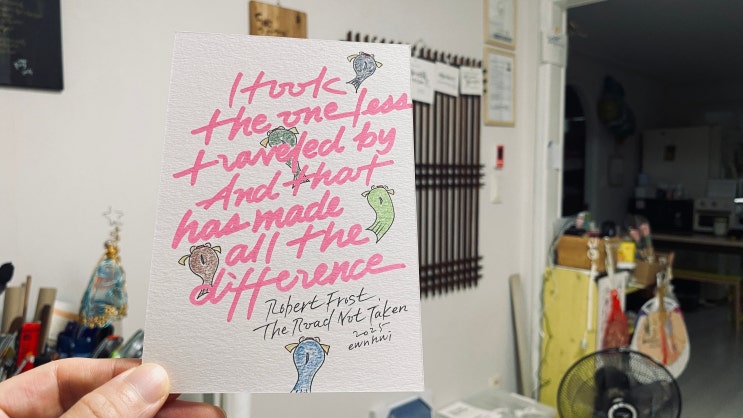 I took
the one less
traveled by
And that
has made
all the
difference
Robert Frost.
The Road Not Taken
2025
ewnhwi